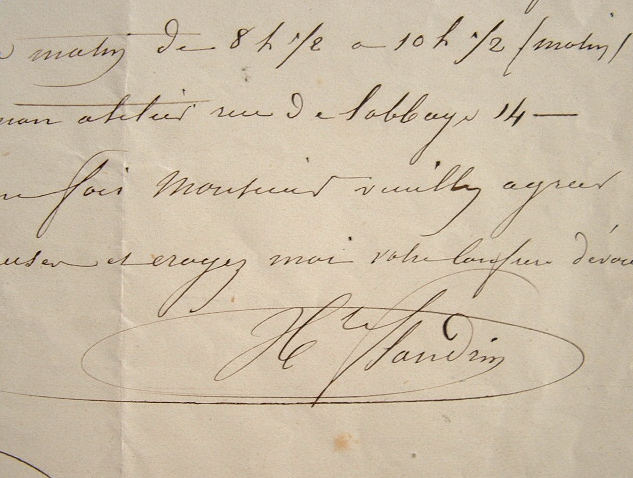 matin de 8 h 1/2 a 10 h 1/2 (matin)
mon atelier rue de l'abbaye 14 —
fois Monsieur veuillez agreer
et croyez moi votre confrere dévou
Hte Flandrin